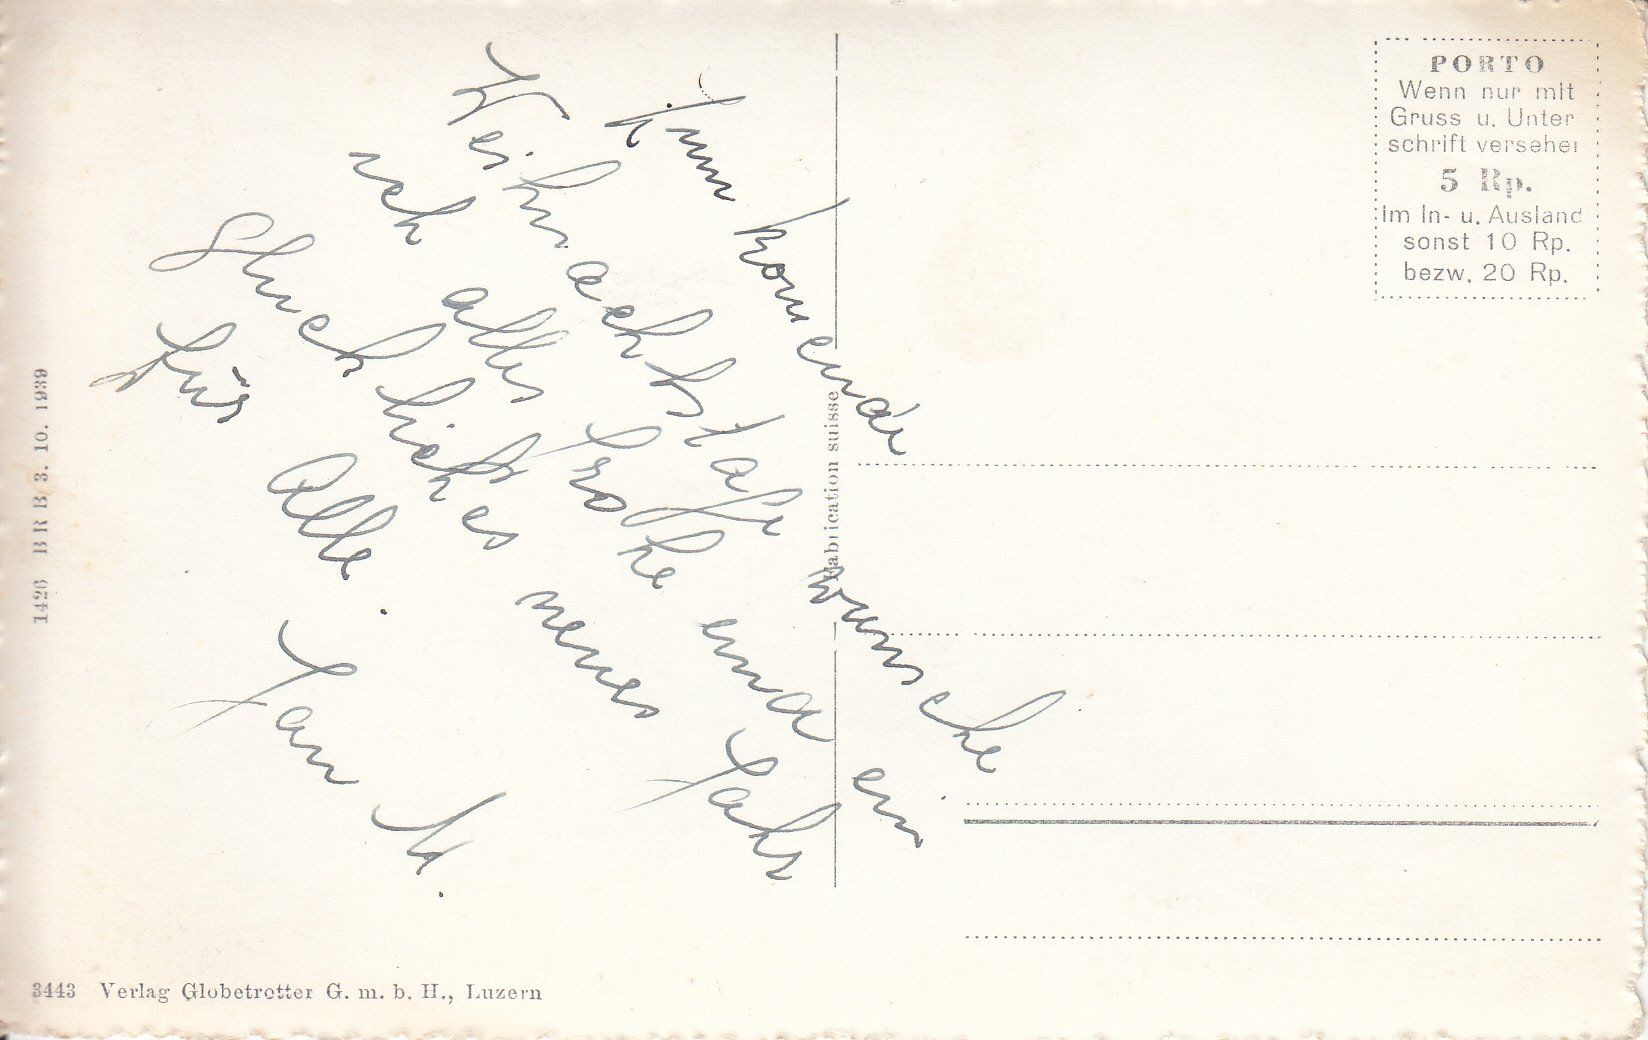 Zum komende
Weihnachstage wunsche
ich alles frohe und ein
Gluckliches neues Jahr
für Alle.
Jan
PORTO
Wenn nur mit
Gruss u. Unter
schrift versehen
5 Rp.
im In- u. Ausland
sonst 10 Rp.
bezw. 20 Rp.
Fabrication suisse
1426 BRB 3. 10. 1939
3443 Verlag Globetrotter G. m. b. H., Luzern